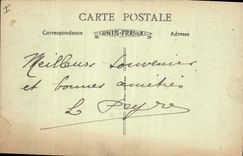 I
CARTE POSTALE
Correspondance
Adresse
Meilleurs souvenirs
et bonnes amitiés
L Peyre